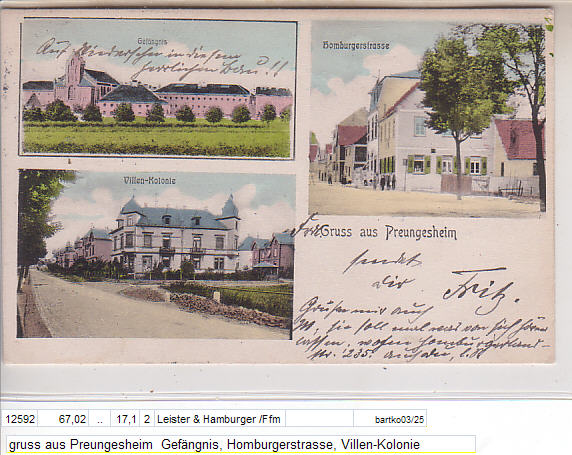 Gefängnis
Auf Wiedersehen in diesem
herrlichen Bau!!
Homburgerstrasse
Villen-Kolonie
Gruss aus Preungesheim
sendet
dir
Fritz.
Grüße mir auch
sie soll mal was von sich hören
lassen, wohne Homburgerland-
str. 235.
12592 67,02 .. 17,1 2 Leister & Hamburger /Ffm bartko03/25
gruss aus Preungesheim Gefängnis, Homburgerstrasse, Villen-Kolonie